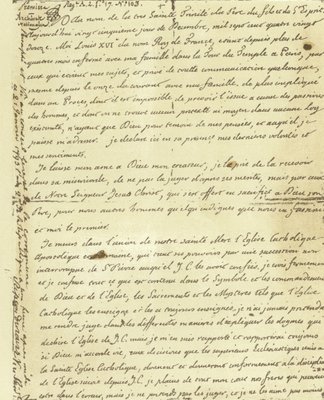 Au nom de la tres Sainte Trinité du Pere du fils et du St Esprit
aujourd'hui vingt cinquieme jour de Decembre, mil sept cent quatre vingt
douze. Moi Louis XVI du nom Roy de France, etant depuis plus de
quatre mois enfermé avec ma famille dans la Tour du Temple a Paris, par
ceux qui etaient mes sujets, et privé de toute communication quelconque,
meme depuis le onze du courant avec ma famille, de plus impliqué
dans un Procès, dont il est impossible de prevoir l'issue a cause des passions
des hommes, et dont on ne trouve aucun pretexte ni moyen dans aucune Loy
existante, n'ayant que Dieu pour temoin de mes pensées, et auquel je
puisse m'adresser. je declare ici en sa presence mes dernieres volontés et
mes sentiments.
Je laisse mon ame a Dieu mon createur, je le prie de la recevoir
dans sa misericorde, de ne pas la juger d'apres ses merites, mais par ceux
de Notre Seigneur Jesus Christ, qui s'est offert en sacrifice a Dieu son
Pere, pour nous autres hommes qu'elqu'indignes que nous en fussions
et moi le premier.
Je meurs dans l'union de notre sainte Mere l'Eglise Catholique
Apostolique et Romaine, qui tient ses pouvoirs par une succession non
interrompue de St Pierre auquel J. C. les avait confiés, je crois fermement
et je confesse tout ce qui est contenu dans le Symbole et les commandements
de Dieu et de l'Eglise, les Sacrements et les Mysteres tels que l'Eglise
Catholique les enseigne et les a toujours enseignés, je n'ai jamais pretendu
me rendre juge dans les differentes manieres d'expliquer les dogmes qui
dechire l'Eglise de J. C. mais je m'en suis rapporté et rapporterai toujours
si Dieu m'accorde vie, aux decisions que les superieurs Ecclesiastiques unis a la
Sainte Eglise Catholique, donnent et donneront conformement a la discipline
de l'Eglise suivie depuis J. C. je plains de tout mon cœur nos freres qui peuvent
etre dans l'erreur, mais je ne pretends pas les juger, et je ne les aime pas moins